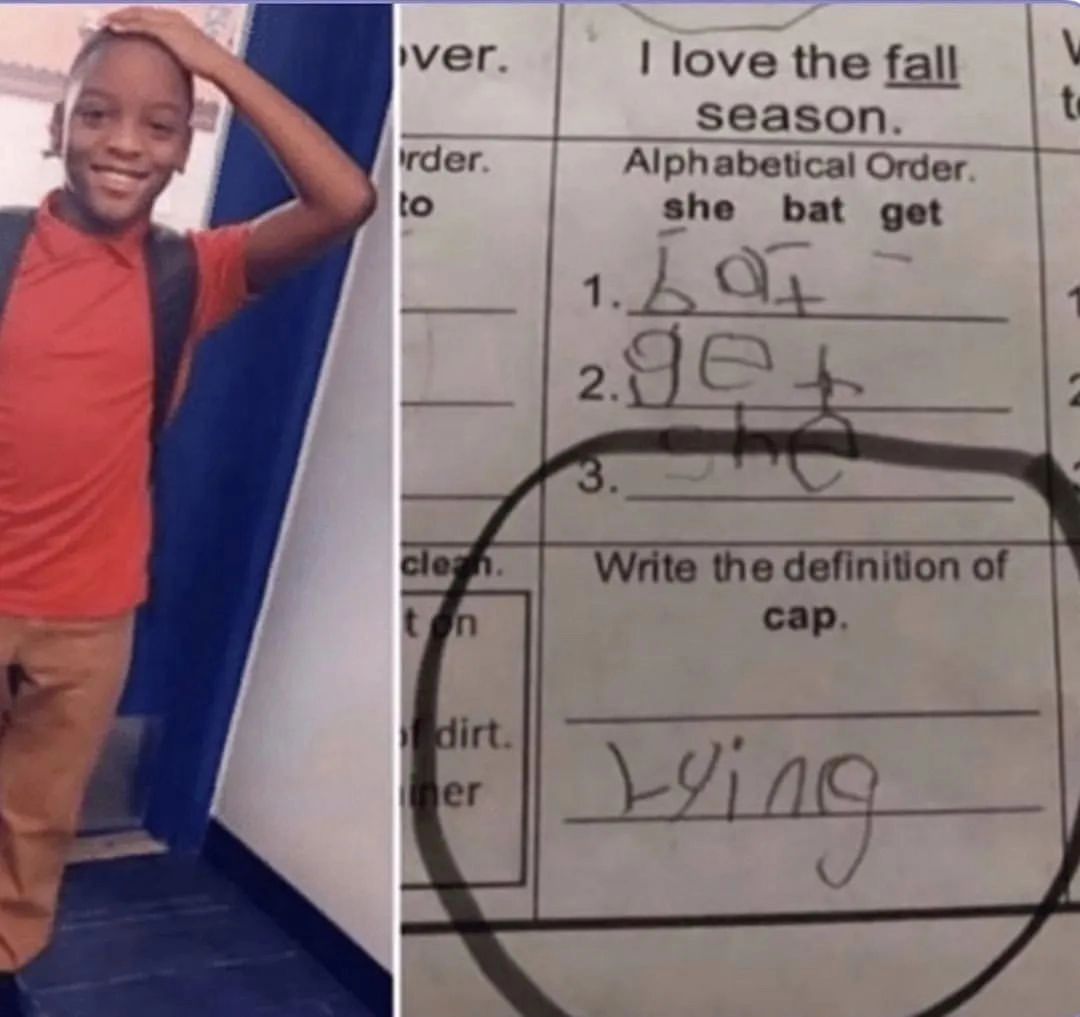 over.
rder.
to
clean.
t on
of dirt.
iner
I love the fall
season.
Alphabetical Order.
she bat get
1. bat
2. get
3. she
Write the definition of
cap.
Lying
1
2